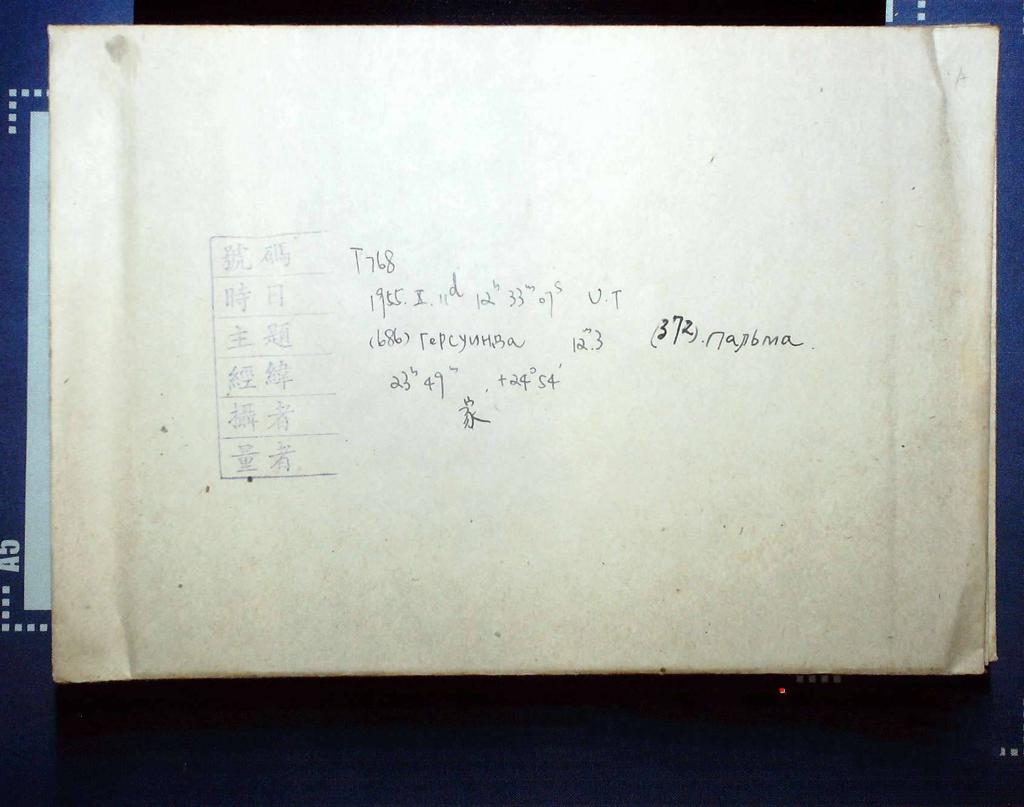 號碼 T768
時日 1955. X. 11ᵈ 12ʰ 33ᵐ 07ˢ U.T
主題 (686) Герсуинда 12ᵐ.3 (372). Пальма.
經緯 23ʰ 49ᵐ, +24°54′
攝者 家
量者
A5